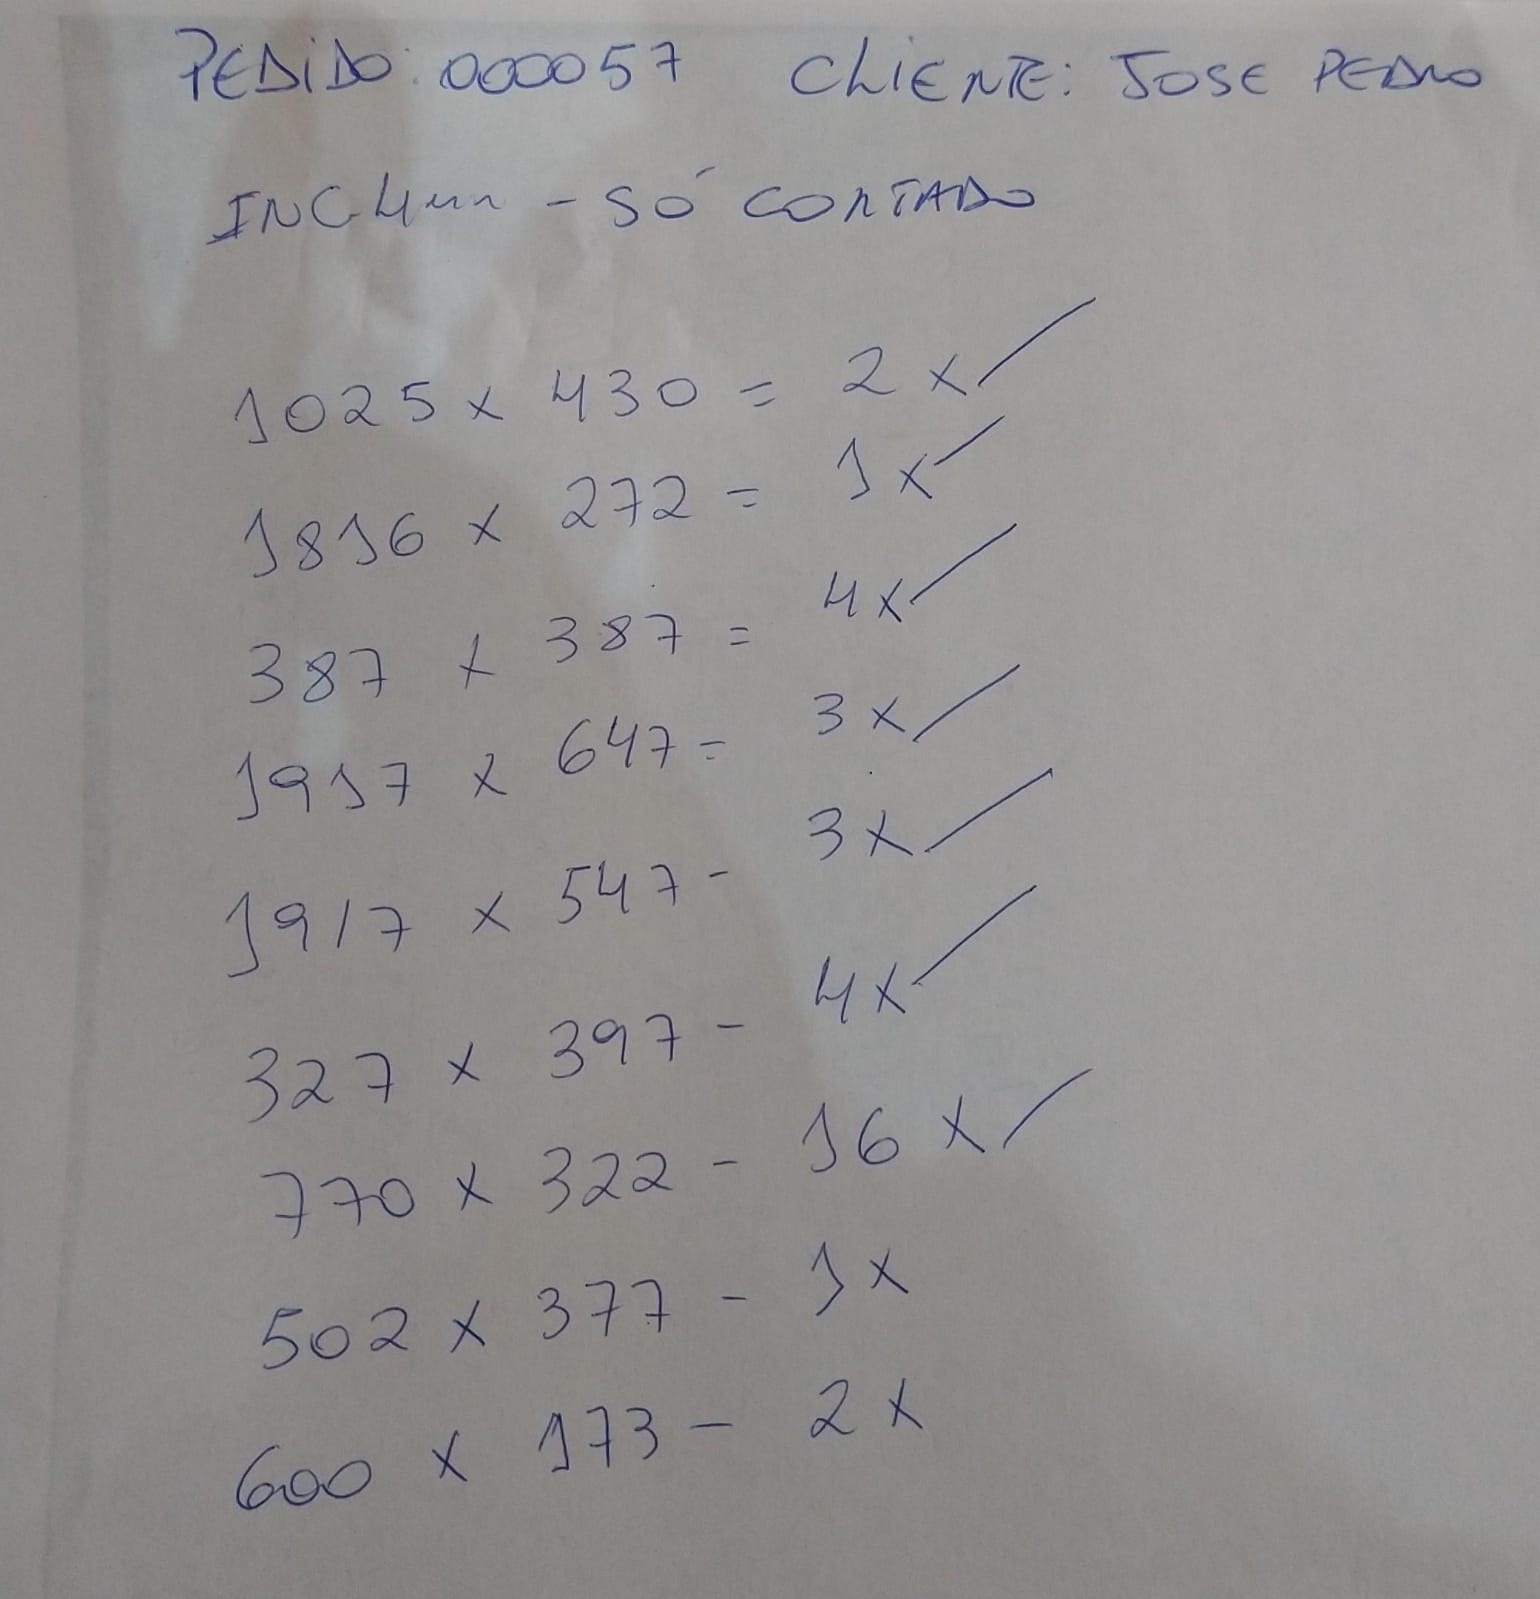 PEDIDO: 000057 CLIENTE: JOSE PEDRO
INC 4mm - SÓ CORTADO
1025 x 430 = 2 x ✓
1816 x 272 = 1 x ✓
387 x 387 = 4 x ✓
1917 x 647 = 3 x ✓
1917 x 547 - 3 x ✓
327 x 397 - 4 x ✓
770 x 322 - 16 x ✓
502 x 377 - 1 x
600 x 173 - 2 x